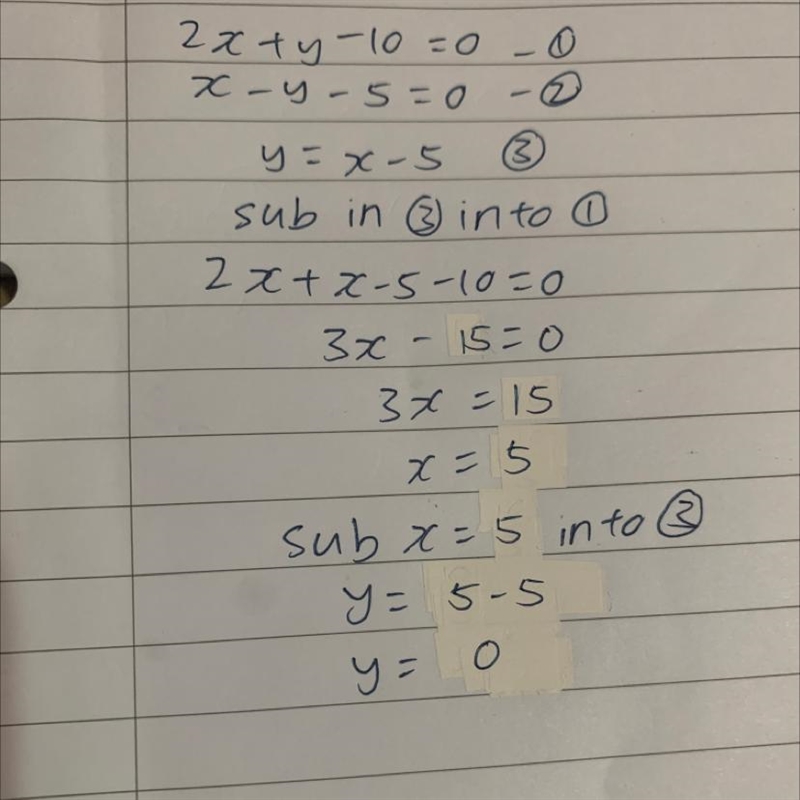 2x + y - 10 = 0 - ①
x - y - 5 = 0 - ②
y = x - 5 ③
sub in ③ into ①
2x + x - 5 - 10 = 0
3x - 15 = 0
3x = 15
x = 5
sub x = 5 into ③
y = 5 - 5
y = 0